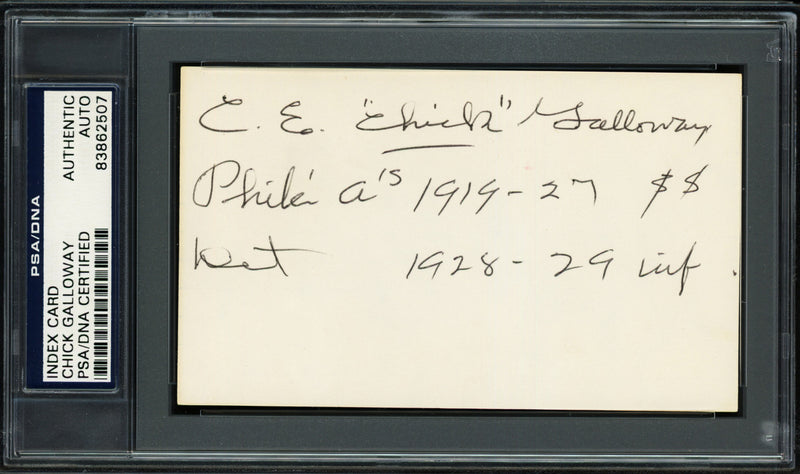 PSA/DNA
INDEX CARD
CHICK GALLOWAY
PSA/DNA CERTIFIED
AUTHENTIC
AUTO
83862507
C. E. "Chick" Galloway
Phila A's 1919-27 $$
Det 1928-29 inf.